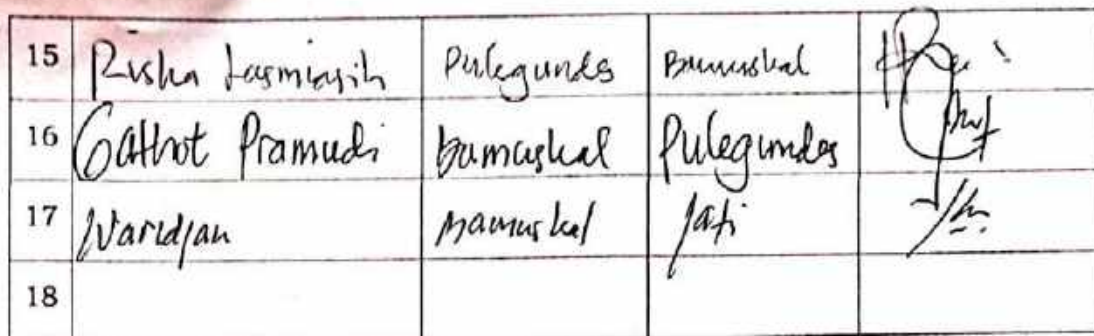 15 Riska Lasmiasih Pulegundes Bamuskal
16 Gathot Pramudi bamuskal Pulegundes
17 Waridjan Bamuskal Jati
18